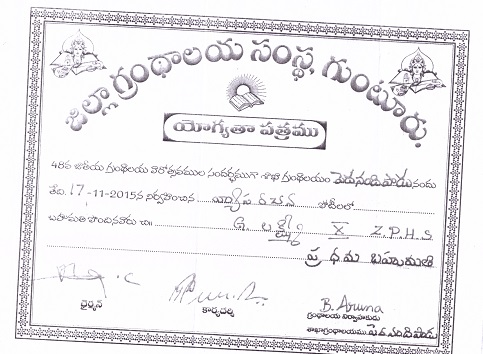 జిల్లా గ్రంథాలయ సంస్థ, గుంటూరు.
యోగ్యతా పత్రము
48వ జాతీయ గ్రంథాలయ వారోత్సవముల సందర్భముగా శాఖా గ్రంథాలయం పెదనందిపాడు నందు
తేది. 17-11-2015న నిర్వహించిన వ్యాస రచన పోటీలలో
బహుమతి పొందినవారు చి॥ X Z.P.H.S
ప్రధమ బహుమతి
B. Aruna
ఛైర్మన్ కార్యదర్శి గ్రంథాలయ నిర్వాహకుడు
శాఖాగ్రంథాలయము పెదనందిపాడు